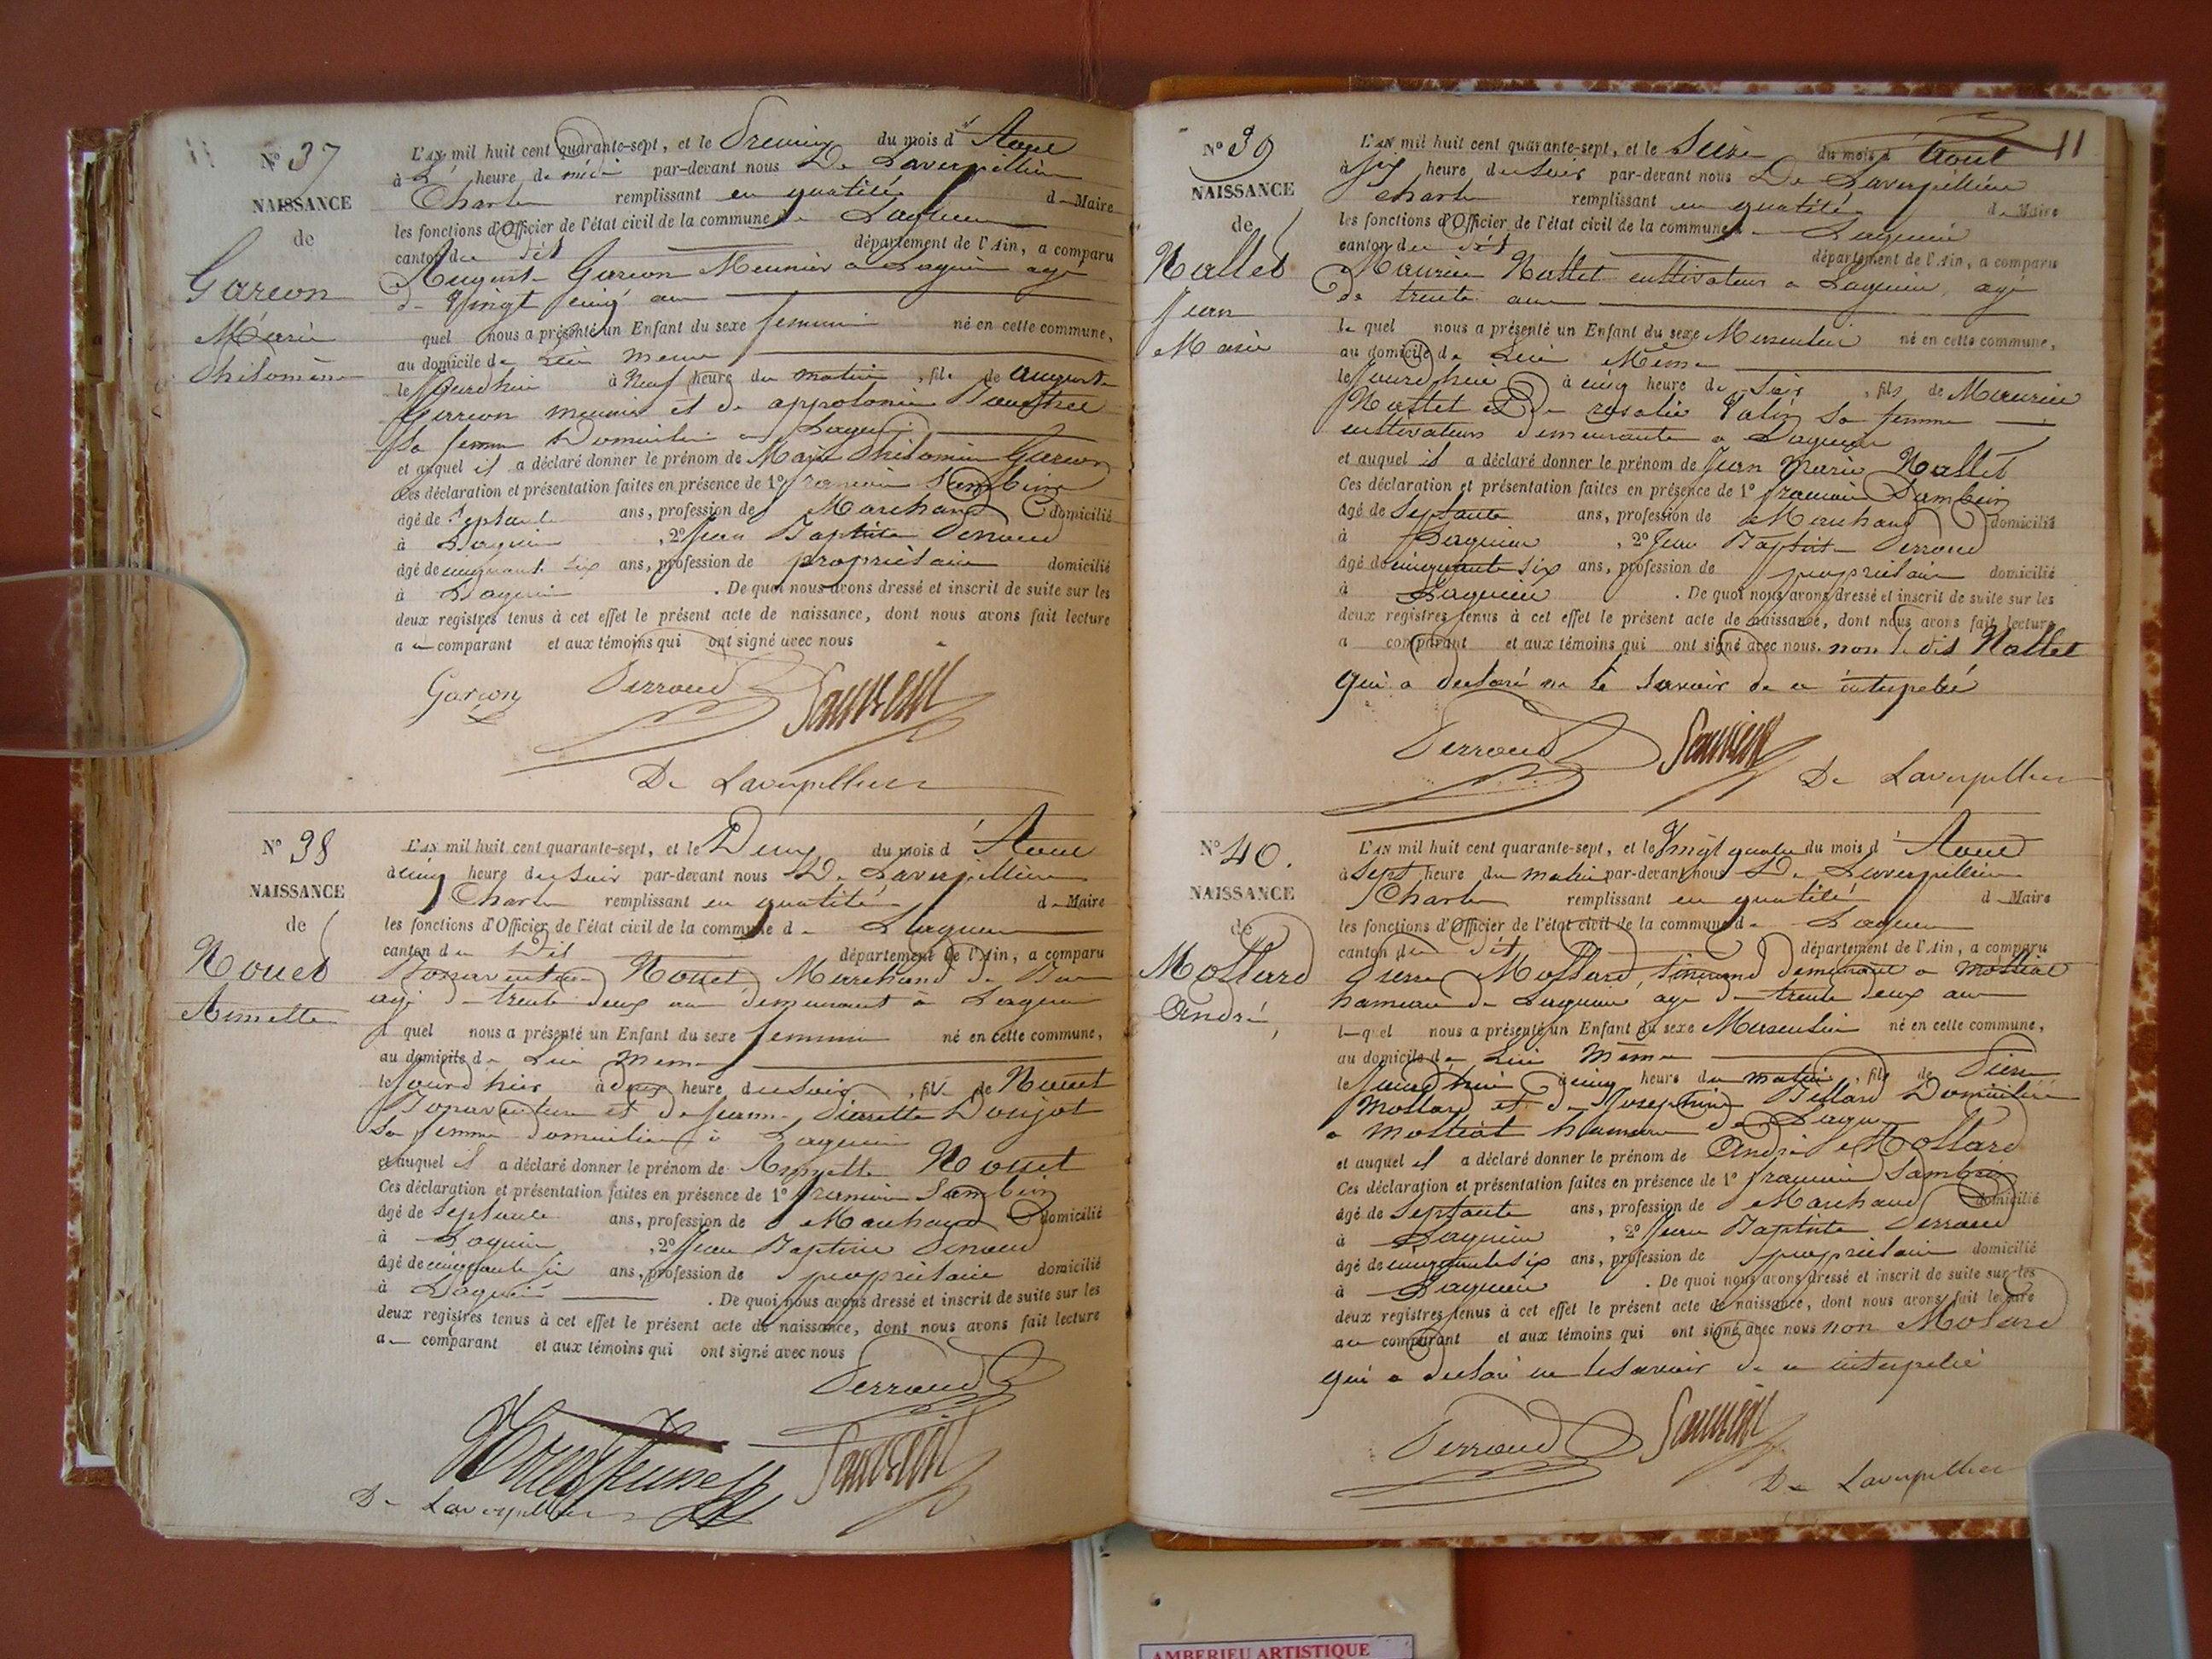 N° 37
NAISSANCE
de
Garcon
Marie
Philomène
L'AN mil huit cent quarante-sept, et le Premier du mois d' Aout
à L' heure de midi par-devant nous De Laverpillière
Charles remplissant en qualité de Maire
les fonctions d'Officier de l'état civil de la commune de Lagnieu
canton du dit département de l'Ain, a comparu
Auguste Garcon Meunier a Lagnieu agé
de Vingt cinq ans
quel nous a présenté un Enfant du sexe feminin né en cette commune,
au domicile de Lui meme
le jourdhui à Neuf heure du matin, fille de August
Garcon meunier et de appolonie
sa femme Domicilie a Lagnieu
et auquel il a déclaré donner le prénom de Marie Philomine Garcon
Ces déclaration et présentation faites en présence de 1° francois Sambin
âgé de Septante ans, profession de Marchand domicilié
à Lagnieu, 2° Jean Baptiste Perroud
âgé de cinquante six ans, profession de propriétaire domicilié
à Lagnieu. De quoi nous avons dressé et inscrit de suite sur les
deux registres tenus à cet effet le présent acte de naissance, dont nous avons fait lecture
au comparant et aux témoins qui ont signé avec nous
Garcon Perroud
De Laverpilliere
N° 38
NAISSANCE
de
Nouet
Annette
L'AN mil huit cent quarante-sept, et le Deux du mois d' Aout
à cinq heure du Soir par-devant nous De Laverpillière
Charles remplissant en qualité de Maire
les fonctions d'Officier de l'état civil de la commune de Lagnieu
canton du Dit département de l'Ain, a comparu
Bonaventure Nouet Marchand de
agé de trente deux ans demeurant a Lagnieu
le quel nous a présenté un Enfant du sexe feminin né en cette commune,
au domicile de Lui meme
le Jourdhui à deux heure du soir, fille de Nouet
Bonaventure et de Jeanne Pierrette
sa femme domicilie à Lagnieu
et auquel il a déclaré donner le prénom de Annette Nouet
Ces déclaration et présentation faites en présence de 1° francois Sambin
âgé de Septante ans, profession de Marchand domicilié
à Lagnieu, 2° Jean Baptiste Perroud
âgé de cinquante six ans, profession de propriétaire domicilié
à Lagnieu. De quoi nous avons dressé et inscrit de suite sur les
deux registres tenus à cet effet le présent acte de naissance, dont nous avons fait lecture
au comparant et aux témoins qui ont signé avec nous
Perroud
Nouet Jeune
De Laverpilliere
11
N° 39
NAISSANCE
de
Nallet
Jean
Marie
L'AN mil huit cent quarante-sept, et le Seize du mois d' Aout
à Six heure du Soir par-devant nous De Laverpillière
Charles remplissant en qualité de Maire
les fonctions d'Officier de l'état civil de la commune de Lagnieu
canton du dit département de l'Ain, a comparu
Maurice Nallet cultivateur a Lagnieu, agé
de trente ans
le quel nous a présenté un Enfant du sexe Masculin né en cette commune,
au domicile de Lui Même
le Jourdhui à cinq heure du Soir, fils de Maurice
Nallet et de rosalie sa femme
cultivateurs demeurante a Lagnieu
et auquel il a déclaré donner le prénom de Jean Marie Nallet
Ces déclaration et présentation faites en présence de 1° francois Sambin
âgé de Septante ans, profession de Marchand domicilié
à Lagnieu, 2° Jean Baptiste Perroud
âgé de cinquante six ans, profession de propriétaire domicilié
à Lagnieu. De quoi nous avons dressé et inscrit de suite sur les
deux registres tenus à cet effet le présent acte de naissance, dont nous avons fait lecture
a comparant et aux témoins qui ont signé avec nous. non le dit Nallet
qui a declaré ne le savoir de ce interpelé
Perroud
De Laverpilliere
N° 40.
NAISSANCE
de
Mollard
André
L'AN mil huit cent quarante-sept, et le Vingt quatre du mois d' Aout
à Sept heure du matin par-devant nous De Laverpillière
Charles remplissant en qualité de Maire
les fonctions d'Officier de l'état civil de la commune de Lagnieu
canton du dit département de l'Ain, a comparu
Pierre Mollard, demeurant a
hameau de Lagnieu agé de trente deux ans
le quel nous a présenté un Enfant du sexe Masculin né en cette commune,
au domicile de Lui Même
le Jourdhui à cinq heure du matin, fils de Pierre
Mollard et de Josephine Billard Domicilié
a hameau de Lagnieu
et auquel il a déclaré donner le prénom de André Mollard
Ces déclaration et présentation faites en présence de 1° francois Sambin
âgé de Septante ans, profession de Marchand domicilié
à Lagnieu, 2° Jean Baptiste Perroud
âgé de cinquante six ans, profession de propriétaire domicilié
à Lagnieu. De quoi nous avons dressé et inscrit de suite sur les
deux registres tenus à cet effet le présent acte de naissance, dont nous avons fait lecture
au comparant et aux témoins qui ont signé avec nous non Molard
qui a declaré ne le savoir de ce interpelé
Perroud
De Laverpilliere
AMBERIEU ARTISTIQUE